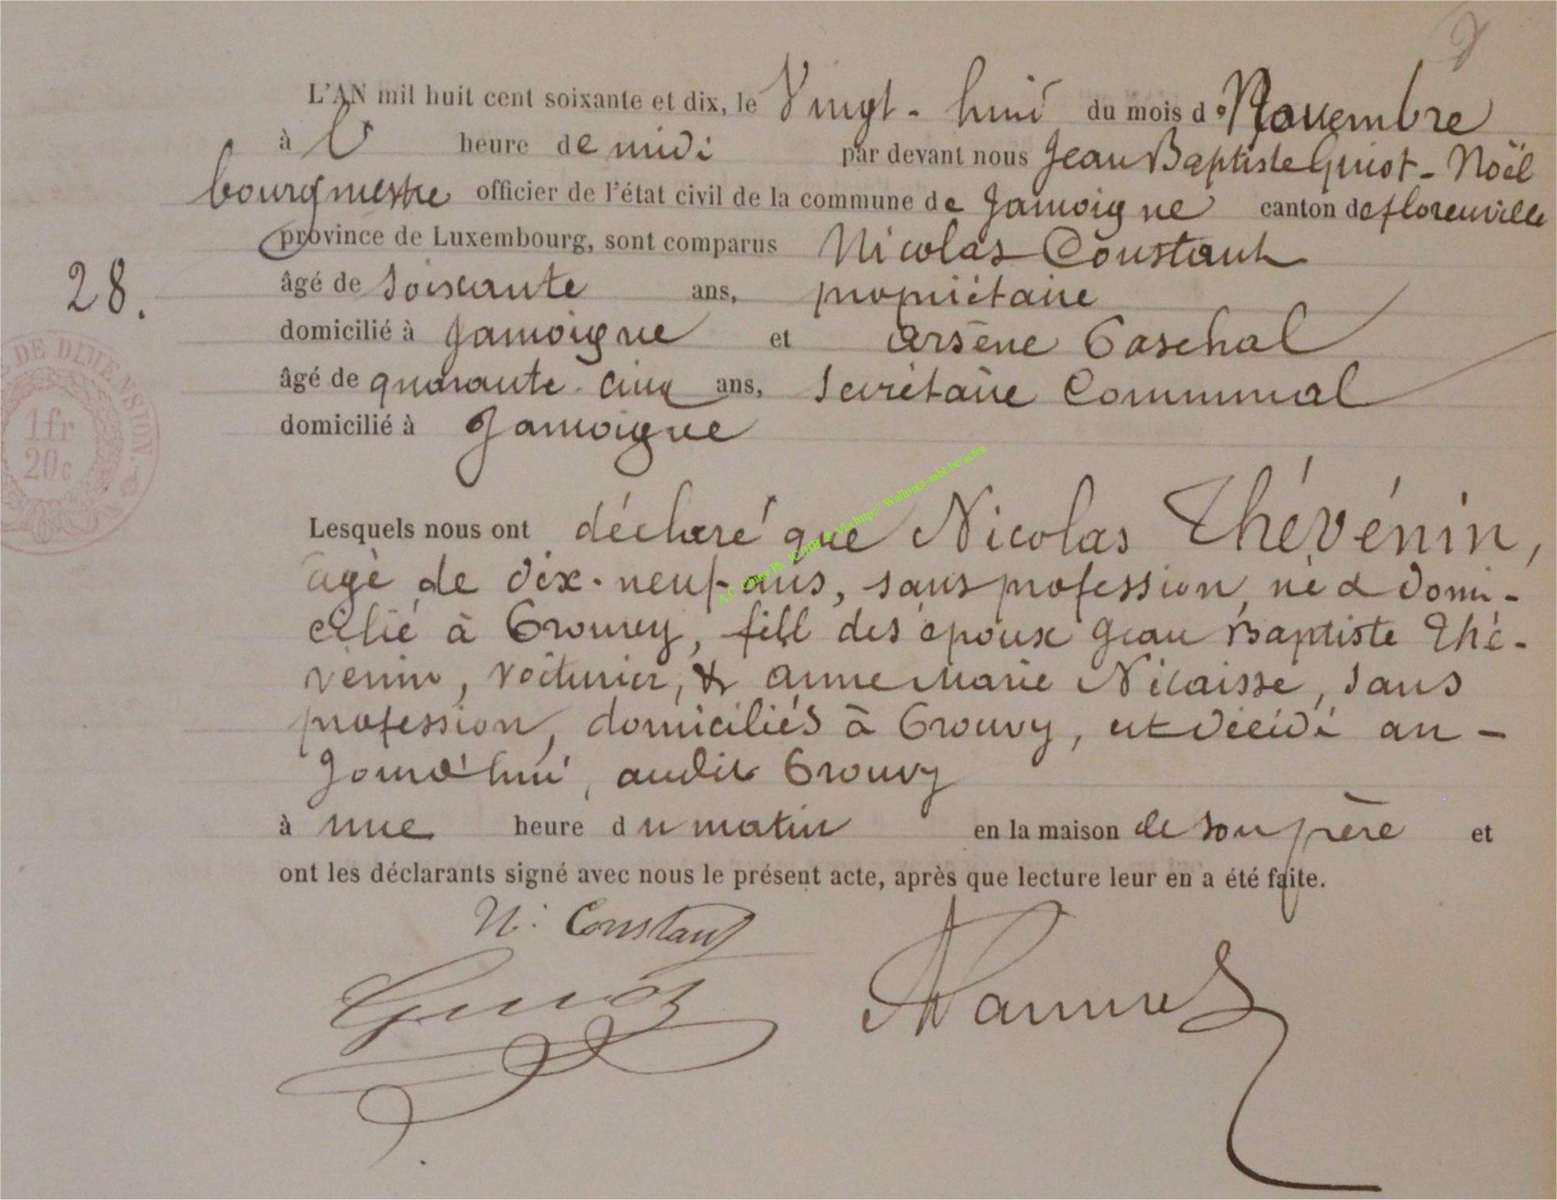 L'AN mil huit cent soixante et dix, le Vingt-huit du mois de Novembre
à l' heure de midi par devant nous Jean Baptiste Guiot-Noël
bourgmestre officier de l'état civil de la commune de Jamoigne canton de florenville
province de Luxembourg, sont comparus Nicolas Constant
28.
âgé de soixante ans, propriétaire
domicilié à Jamoigne et Arsène Paschal
âgé de quarante-cinq ans, Secrétaire Communal
domicilié à Jamoigne
DE DIMENSION.
1fr
20c
Lesquels nous ont déclaré que Nicolas Thévenin,
âgé de dix-neuf ans, sans profession, né & domi-
cilié à Prouvy, fill des époux Jean Baptiste Thé-
venin, voiturier, & Anne Marie Nicaisse, sans
profession, domiciliés à Prouvy, est décédé au-
jourd'hui, audit Prouvy
à une heure du matin en la maison de son père et
ont les déclarants signé avec nous le présent acte, après que lecture leur en a été faite.
N. Constant
Guiot